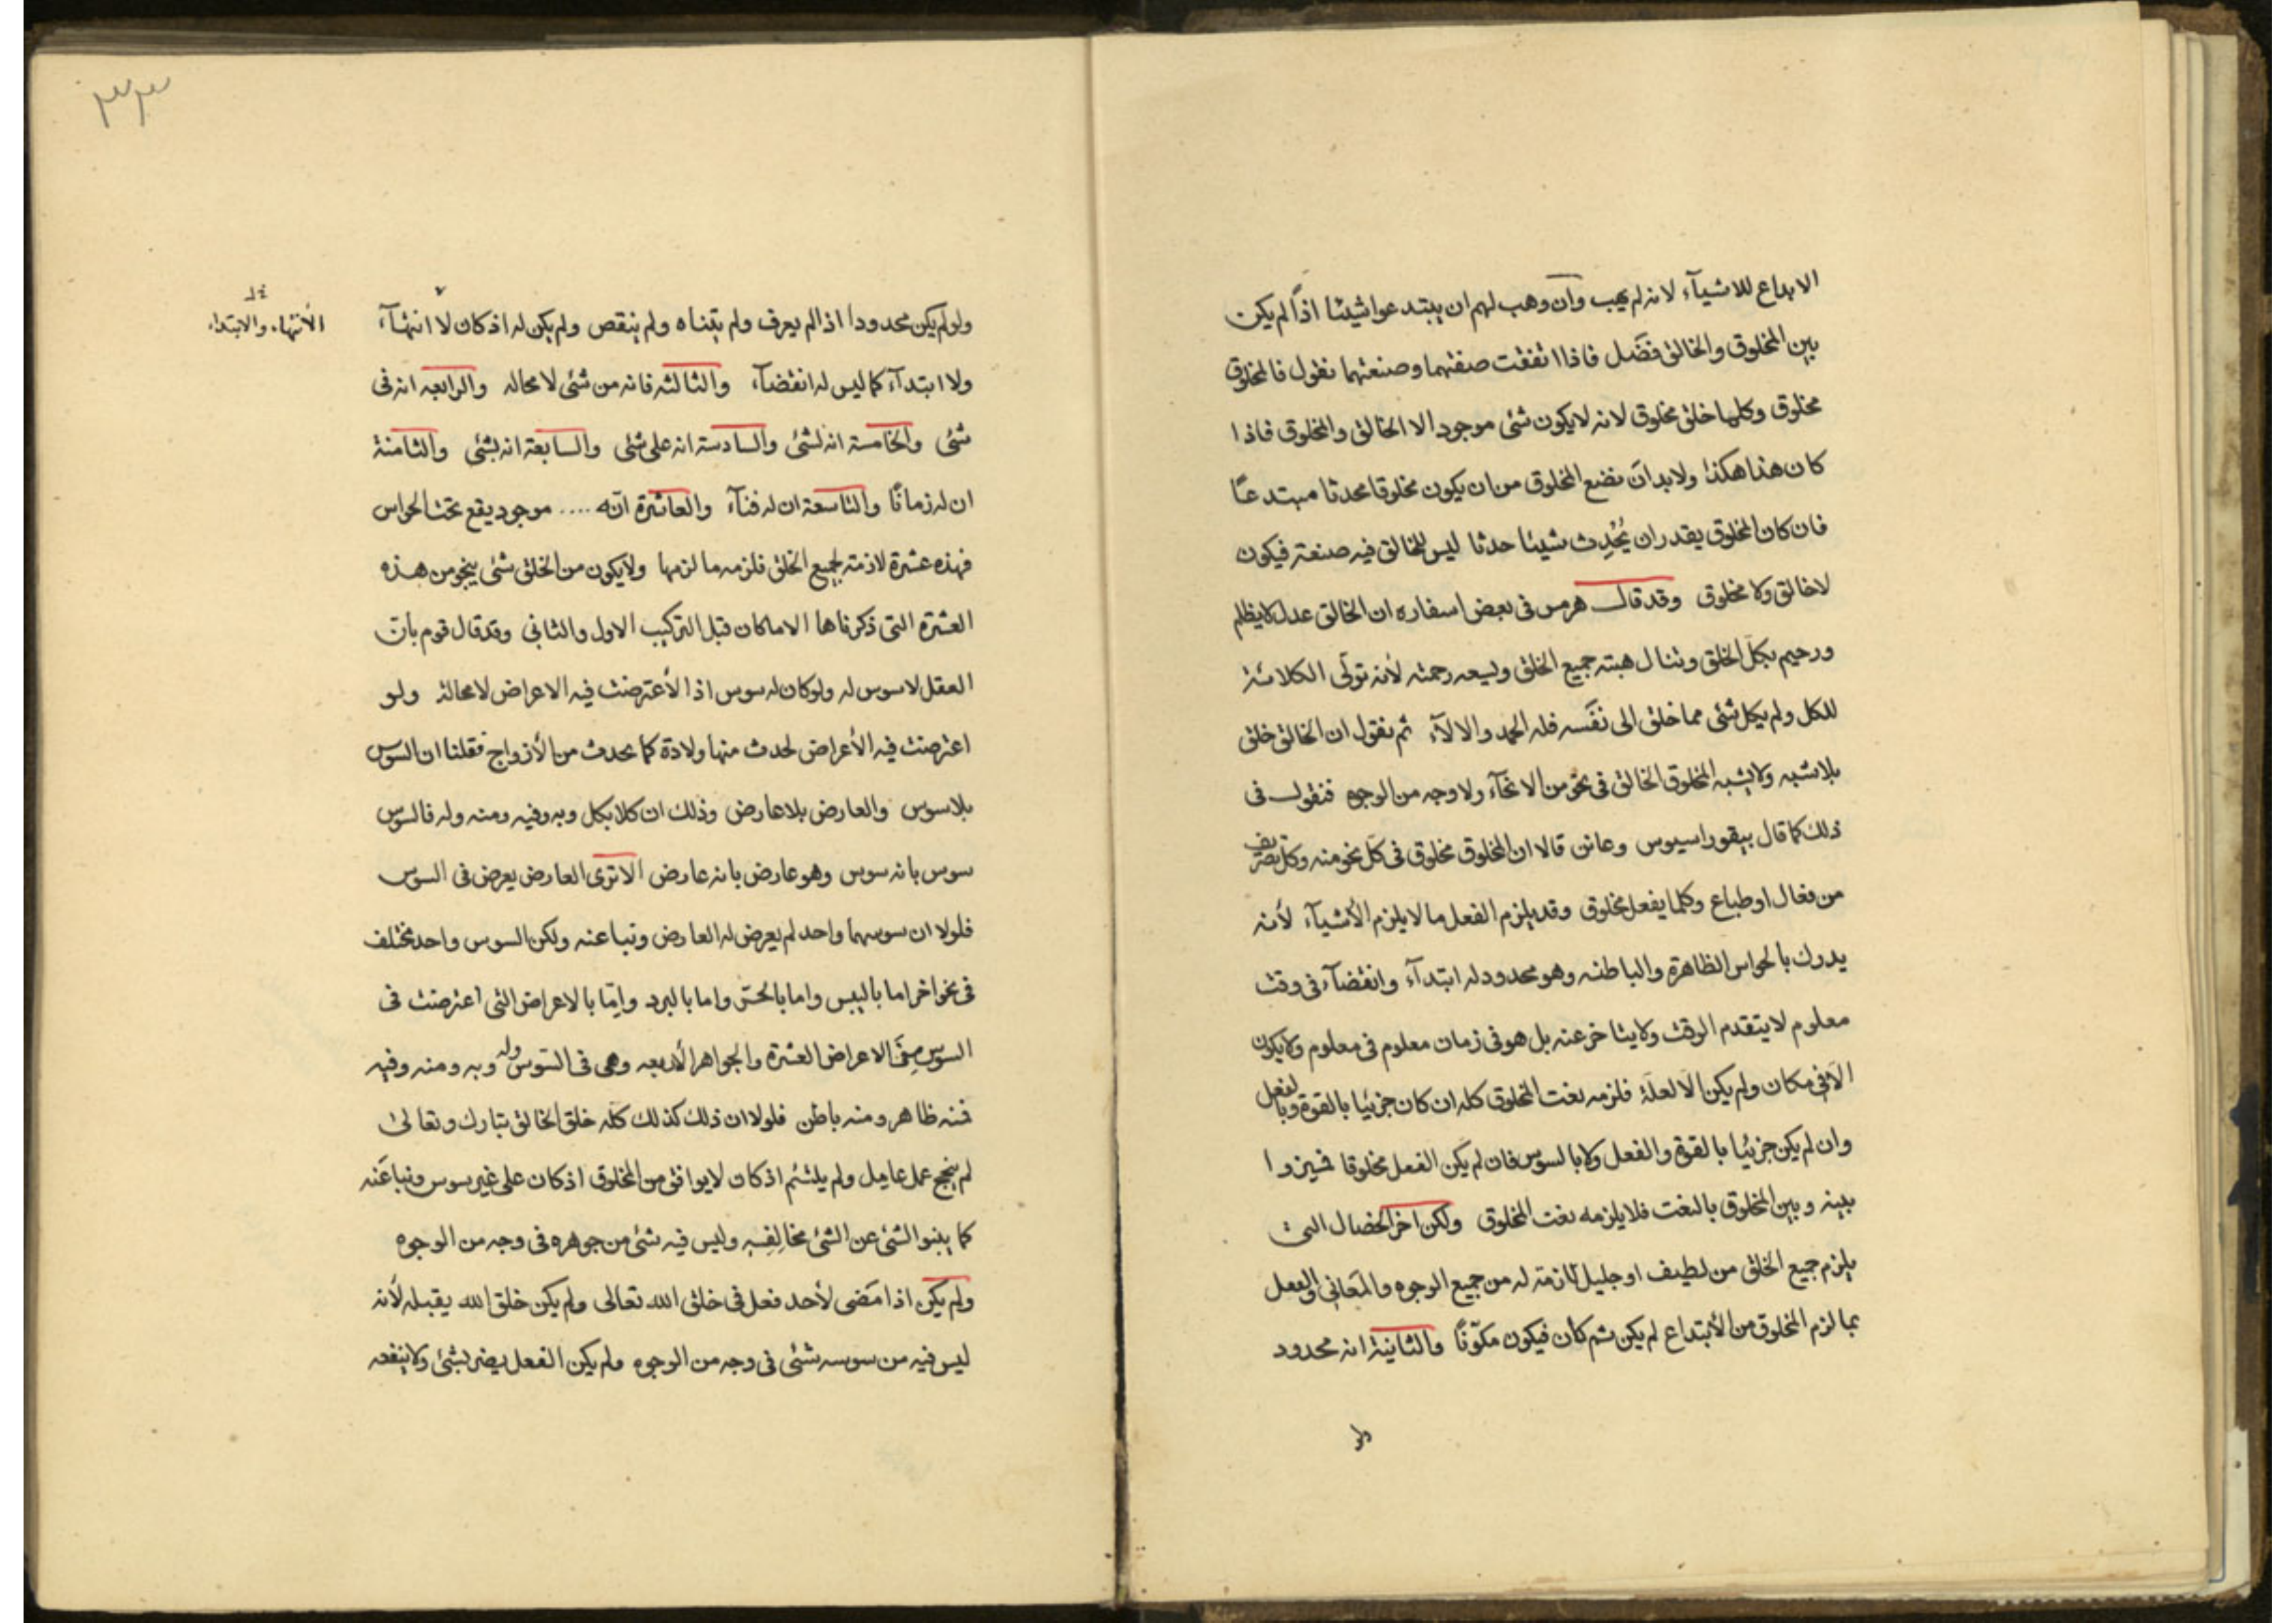 الابداع للاشيآء لانه لم يجب وان وهب لهم ان يبتدعوا شيئا اذًا لم يكن
بين المخلوق والخالق فضل فاذا اتفقت صفتهما وصنعتهما نقول فالمخلوق
مخلوق وكلها خلق مخلوق لانه لا يكون شئ موجود الا الخالق والمخلوق فاذا
كان هذا هكذا ولا بد ان نضع المخلوق من ان يكون مخلوقا محدثا مبتدعًا
فان كان المخلوق يقدر ان يُحْدِث شيئا حدثا ليس للخالق فيه صنعة فيكون
لا خالق ولا مخلوق وقد قال هرمس فى بعض اسفاره ان الخالق عدل لا يظلم
ورحيم بكل الخلق وتنال هبته جميع الخلق وليسعه رحمته لأنه تولّى الكلائة
للكل ولم يكل شئ مما خلق الى نفسه فله الحمد والالآء ثم نقول ان الخالق خلق
بلا شبه ولا يشبه المخلوق الخالق فى نحو من الانحآء ولا وجه من الوجوه فنقول فى
ذلك كما قال بيقوراسيوس وعاتن قالا ان المخلوق مخلوق فى كل نحو منه وكل تصريف
من فعال او طباع وكلما يفعل مخلوق وقد يلزم الفعل ما لا يلزم الأشيآء لأنه
يدرك بالحواس الظاهرة والباطنه وهو محدود له ابتدآء وانقضآء فى وقت
معلوم لا يتقدم الوقت ولا يتاخر عنه بل هو فى زمان معلوم فى معلوم ولا يكون
الّا فى مكان ولم يكن الّا لعلة فلزمه نعت المخلوق كله ان كان جزئيا بالقوة وبالفعل
وان لم يكن جزئيا بالقوة والفعل ولا بالسوس فان لم يكن الفعل مخلوقا فميزوا
بينه وبين المخلوق بالنعت فلا يلزمه نعت المخلوق ولكن اخر الخصال التى
يلزم جميع الخلق من لطيف او جليل لازمة له من جميع الوجوه والمعانى والفعل
بما لزم المخلوق من الأبتداع لم يكن ثم كان فيكون مكوّنًا والثانية انه محدود
ولو
٣٣
ولو لم يكن محدودا اذا لم يعرف ولم يتناه ولم ينقص ولم يكن له اذ كان لا انتهآء
الأنتهاء والابتداء
ولا ابتدآء كما ليس له انقضآء والثالثه فانه من شئ لا محاله والرابعه انه فى
شئ والخامسة انه لشئ والسادسة انه على شئ والسابعة انه بشئ والثامنة
ان له زمانًا والتاسعة ان له فنآء والعاشرة انّه .... موجود يقع تحت الحواس
فهذه عشرة لازمة لجميع الخلق فلزمه ما لزمها ولا يكون من الخلق شئ ينجو من هذه
العشرة التى ذكرناها الا ما كان قبل التركيب الاول والثانى وقد قال قوم بان
العقل لا سوس له ولو كان له سوس اذا لأعترضت فيه الاعراض لا محالة ولو
اعترضت فيه الأعراض لحدث منها ولادة كما يحدث من الأزواج فقلنا ان السوس
بلا سوس والعارض بلا عارض وذلك ان كلا بكل وبه وفيه ومنه وله فالسوس
سوس بانه سوس وهو عارض بانه عارض الا ترى العارض يعرض فى السوس
فلولا ان سوسهما واحد لم يعرض له العارض ونبا عنه ولكن السوس واحد مختلف
فى نحو اخر اما باليبس واما بالحسّ واما بالبرد وامّا بالاعراض التى اعترضت فى
السوس من الاعراض العشرة والجواهر الأربعه وهى فى السّوس وله وبه ومنه وفيه
فمنه ظاهر ومنه باطن فلولا ان ذلك كذلك كله خلق الخالق تبارك وتعالى
لم ينجح عمل عامل ولم يلتئم اذ كان لا يوافق من المخلوق اذ كان على غير سوس ونبا عنه
كما ينبو الشئ عن الشئ مخالفه وليس فيه شئ من جوهره فى وجه من الوجوه
ولم يكن اذا مضى لأحد فعل فى خلق الله تعالى ولم يكن خلق الله يقبله لأنه
ليس فيه من سوسه شئ فى وجه من الوجوه ولم يكن الفعل يضر بشئ ولا ينفعه